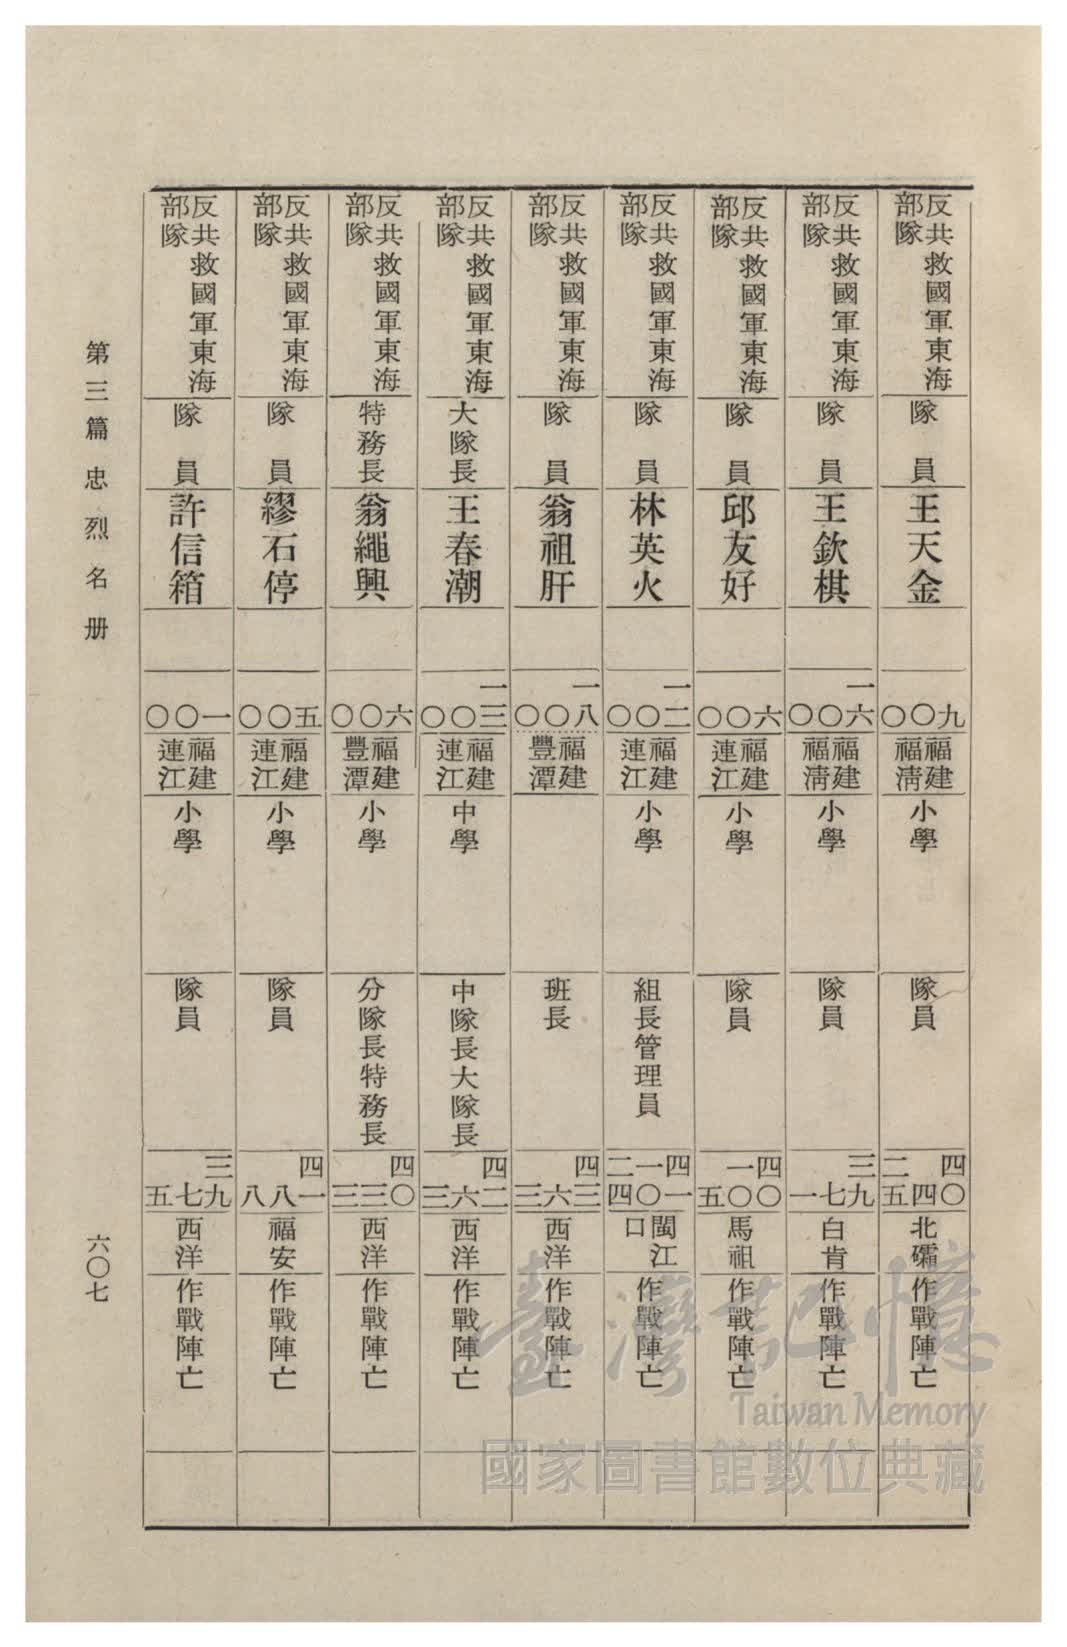 反共救國軍東海
部隊
隊員
王天金
九
〇
〇
福建
福清
小學
隊員
四〇
四
二五
北礵
作戰陣亡
反共救國軍東海
部隊
隊員
王欽棋
一六
〇
〇
福建
福清
小學
隊員
三九
七
一
白肯
作戰陣亡
反共救國軍東海
部隊
隊員
邱友好
六
〇
〇
福建
連江
小學
隊員
四〇
一〇
五
馬祖
作戰陣亡
反共救國軍東海
部隊
隊員
林英火
一二
〇
〇
福建
連江
小學
組長管理員
四一
一〇
二四
閩江
口
作戰陣亡
反共救國軍東海
部隊
隊員
翁祖肝
一八
〇
〇
福建
豐潭
班長
四三
六
三
西洋
作戰陣亡
反共救國軍東海
部隊
大隊長
王春潮
一三
〇
〇
福建
連江
中學
中隊長大隊長
四二
六
三
西洋
作戰陣亡
反共救國軍東海
部隊
特務長
翁繩興
六
〇
〇
福建
豐潭
小學
分隊長特務長
四〇
三
三
西洋
作戰陣亡
反共救國軍東海
部隊
隊員
繆石停
五
〇
〇
福建
連江
小學
隊員
四一
八
八
福安
作戰陣亡
反共救國軍東海
部隊
隊員
許信箱
一
〇
〇
福建
連江
小學
隊員
三九
七
五
西洋
作戰陣亡
第三篇 忠烈名册
六〇七
臺灣記憶
Taiwan Memory
國家圖書館數位典藏